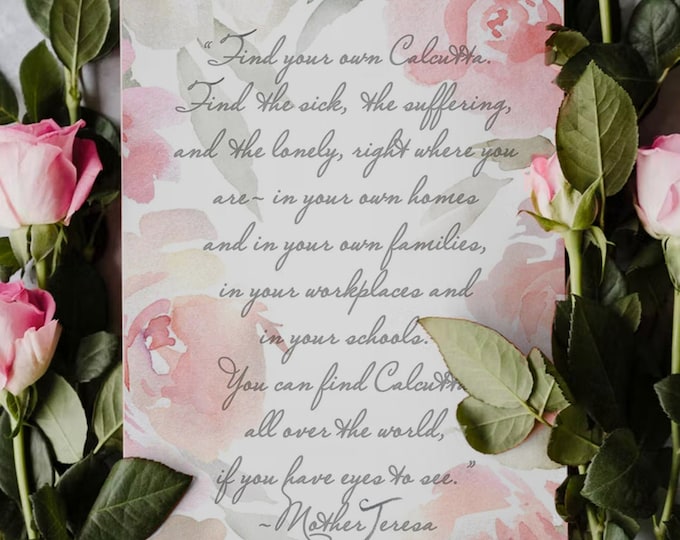 “Find your own Calcutta.
Find the sick, the suffering,
and the lonely, right where you
are~ in your own homes
and in your own families,
in your workplaces and
in your schools.
You can find Calcutta
all over the world,
if you have eyes to see.”
~Mother Teresa